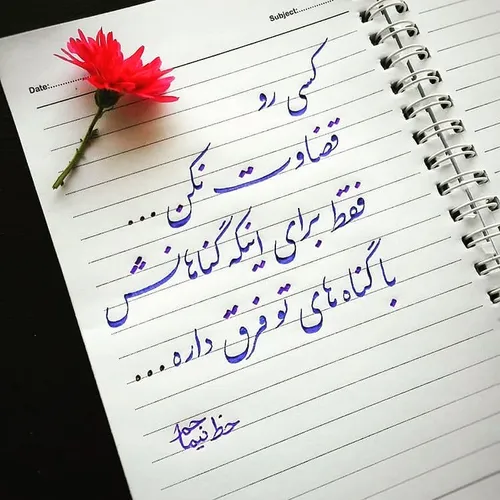 Subject:..............
Date:..............
کسی رو
قضاوت نکن ...
فقط برای اینکه گناهانش
با گناه های تو فرق داره ...
خط نیما